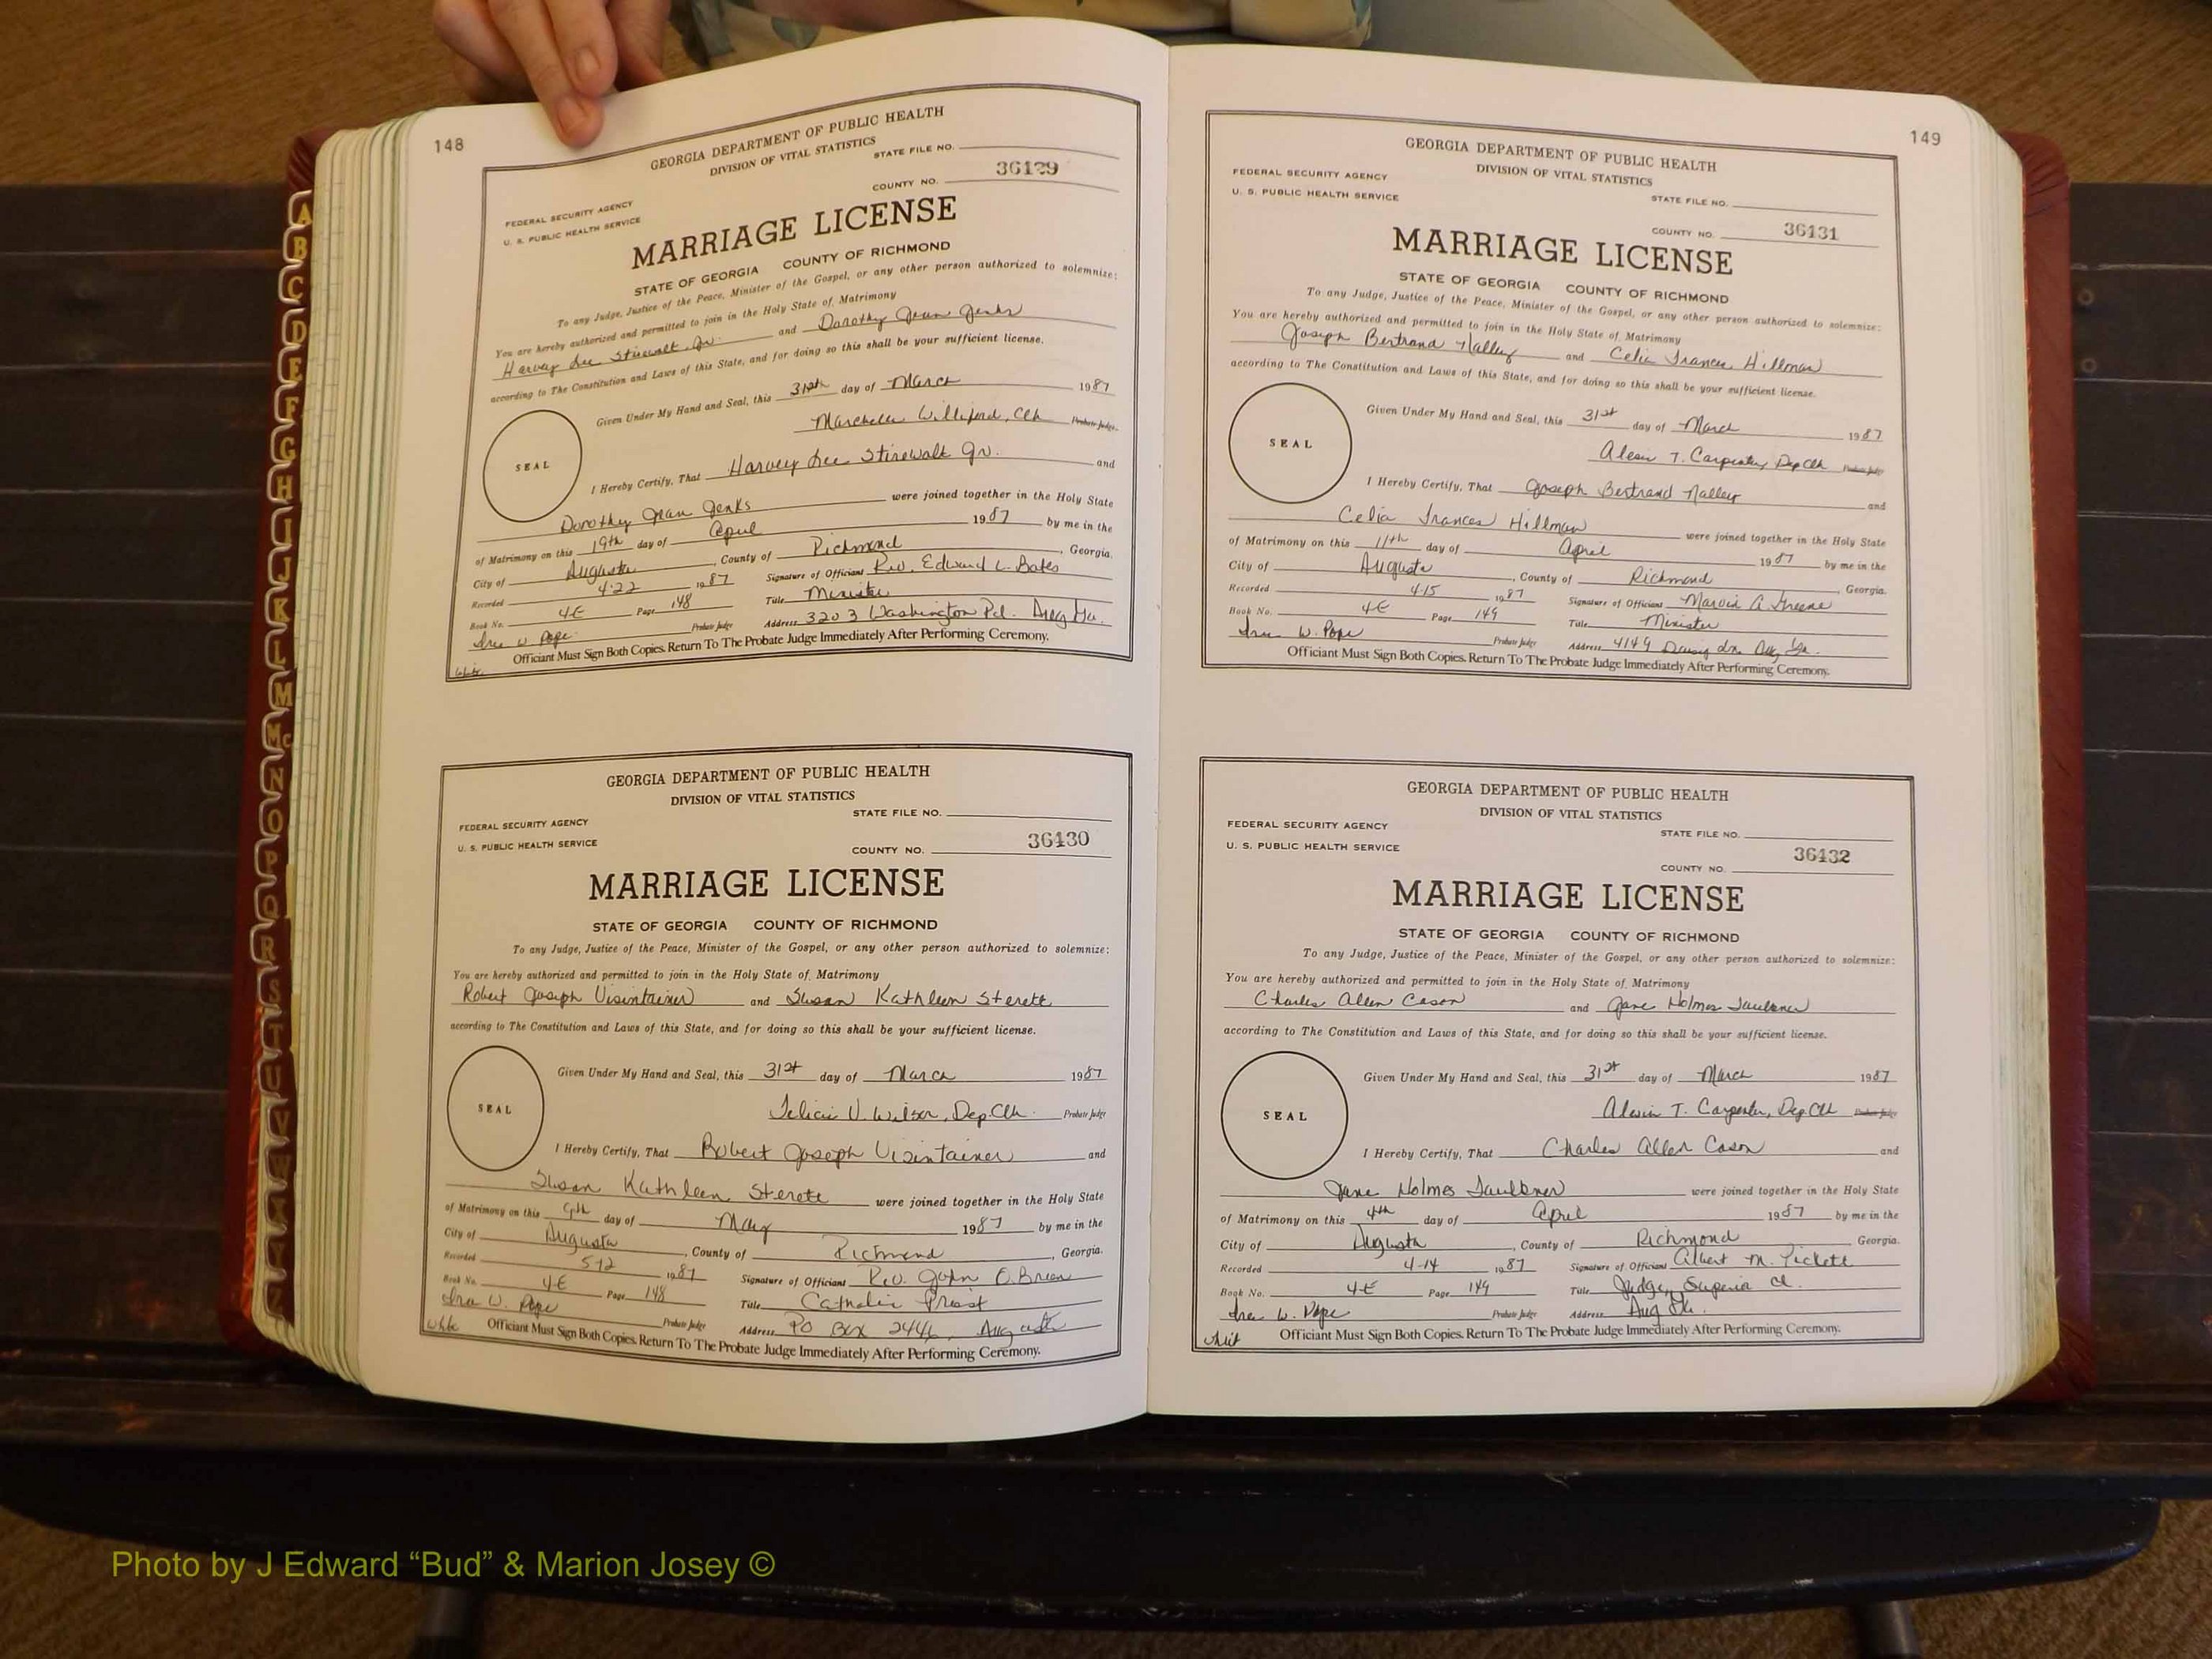 148
GEORGIA DEPARTMENT OF PUBLIC HEALTH
DIVISION OF VITAL STATISTICS
STATE FILE NO.
FEDERAL SECURITY AGENCY
COUNTY NO. 36129
U. S. PUBLIC HEALTH SERVICE
MARRIAGE LICENSE
STATE OF GEORGIA COUNTY OF RICHMOND
To any Judge, Justice of the Peace, Minister of the Gospel, or any other person authorized to solemnize:
You are hereby authorized and permitted to join in the Holy State of Matrimony
Harvey Lee Stirewalt Jr. and Dorothy Jean Jenks
according to The Constitution and Laws of this State, and for doing so this shall be your sufficient license.
Given Under My Hand and Seal, this 31st day of March 1987
Williford, Clk Probate Judge
SEAL
I Hereby Certify, That Harvey Lee Stirewalt Jr. and
Dorothy Jean Jenks were joined together in the Holy State
of Matrimony on this 19th day of April 1987 by me in the
City of Augusta, County of Richmond, Georgia.
Recorded 4-22 1987 Signature of Officiant Rev. Edward L. Bates
Book No. 4E Page 148 Title Minister
Ira W. Pope Probate Judge Address 3203 Washington Rd. Aug Ga.
Officiant Must Sign Both Copies. Return To The Probate Judge Immediately After Performing Ceremony.
white
GEORGIA DEPARTMENT OF PUBLIC HEALTH
DIVISION OF VITAL STATISTICS
STATE FILE NO.
FEDERAL SECURITY AGENCY
U. S. PUBLIC HEALTH SERVICE
COUNTY NO. 36130
MARRIAGE LICENSE
STATE OF GEORGIA COUNTY OF RICHMOND
To any Judge, Justice of the Peace, Minister of the Gospel, or any other person authorized to solemnize:
You are hereby authorized and permitted to join in the Holy State of Matrimony
Robert Joseph Visintainer and Susan Kathleen Sterett
according to The Constitution and Laws of this State, and for doing so this shall be your sufficient license.
Given Under My Hand and Seal, this 31st day of March 1987
Felicia V. Wilson, Dep Clk. Probate Judge
SEAL
I Hereby Certify, That Robert Joseph Visintainer and
Susan Kathleen Sterett were joined together in the Holy State
of Matrimony on this 9th day of May 1987 by me in the
City of Augusta, County of Richmond, Georgia.
Recorded 5-12 1987 Signature of Officiant Rev. John O'Brien
Book No. 4E Page 148 Title Catholic Priest
Ira W. Pope Probate Judge Address PO Box Augusta
white Officiant Must Sign Both Copies. Return To The Probate Judge Immediately After Performing Ceremony.
149
GEORGIA DEPARTMENT OF PUBLIC HEALTH
DIVISION OF VITAL STATISTICS
FEDERAL SECURITY AGENCY
U. S. PUBLIC HEALTH SERVICE
STATE FILE NO.
COUNTY NO. 36131
MARRIAGE LICENSE
STATE OF GEORGIA COUNTY OF RICHMOND
To any Judge, Justice of the Peace, Minister of the Gospel, or any other person authorized to solemnize:
You are hereby authorized and permitted to join in the Holy State of Matrimony
Joseph Bertrand Nalley and Celia Frances Hillman
according to The Constitution and Laws of this State, and for doing so this shall be your sufficient license.
Given Under My Hand and Seal, this 31st day of March 1987
T. Carpenter, Dep Clk Probate Judge
SEAL
I Hereby Certify, That Joseph Bertrand Nalley and
Celia Frances Hillman were joined together in the Holy State
of Matrimony on this 11th day of April 1987 by me in the
City of Augusta, County of Richmond, Georgia.
Recorded 4-15 1987 Signature of Officiant Marvin A Greene
Book No. 4E Page 149 Title Minister
Ira W. Pope Probate Judge Address 4149 Dr. Aug Ga.
Officiant Must Sign Both Copies. Return To The Probate Judge Immediately After Performing Ceremony.
GEORGIA DEPARTMENT OF PUBLIC HEALTH
DIVISION OF VITAL STATISTICS
FEDERAL SECURITY AGENCY
STATE FILE NO.
U. S. PUBLIC HEALTH SERVICE
COUNTY NO. 36132
MARRIAGE LICENSE
STATE OF GEORGIA COUNTY OF RICHMOND
To any Judge, Justice of the Peace, Minister of the Gospel, or any other person authorized to solemnize:
You are hereby authorized and permitted to join in the Holy State of Matrimony
Charles Allen Cason and Jane Holmes Faulkner
according to The Constitution and Laws of this State, and for doing so this shall be your sufficient license.
Given Under My Hand and Seal, this 31st day of March 1987
T. Carpenter, Dep Clk Probate Judge
SEAL
I Hereby Certify, That Charles Allen Cason and
Jane Holmes Faulkner were joined together in the Holy State
of Matrimony on this 4th day of April 1987 by me in the
City of Augusta, County of Richmond Georgia.
Recorded 4-14 1987 Signature of Officiant Albert M. Pickett
Book No. 4E Page 149 Title Judge, Superior Ct.
Ira W. Pope Probate Judge Address Aug Ga.
white Officiant Must Sign Both Copies. Return To The Probate Judge Immediately After Performing Ceremony.
A
B
C
D
E
F
G
H
I
J
K
L
M
Mc
N
O
P
Q
R
S
T
U
V
W
Photo by J Edward “Bud” & Marion Josey ©